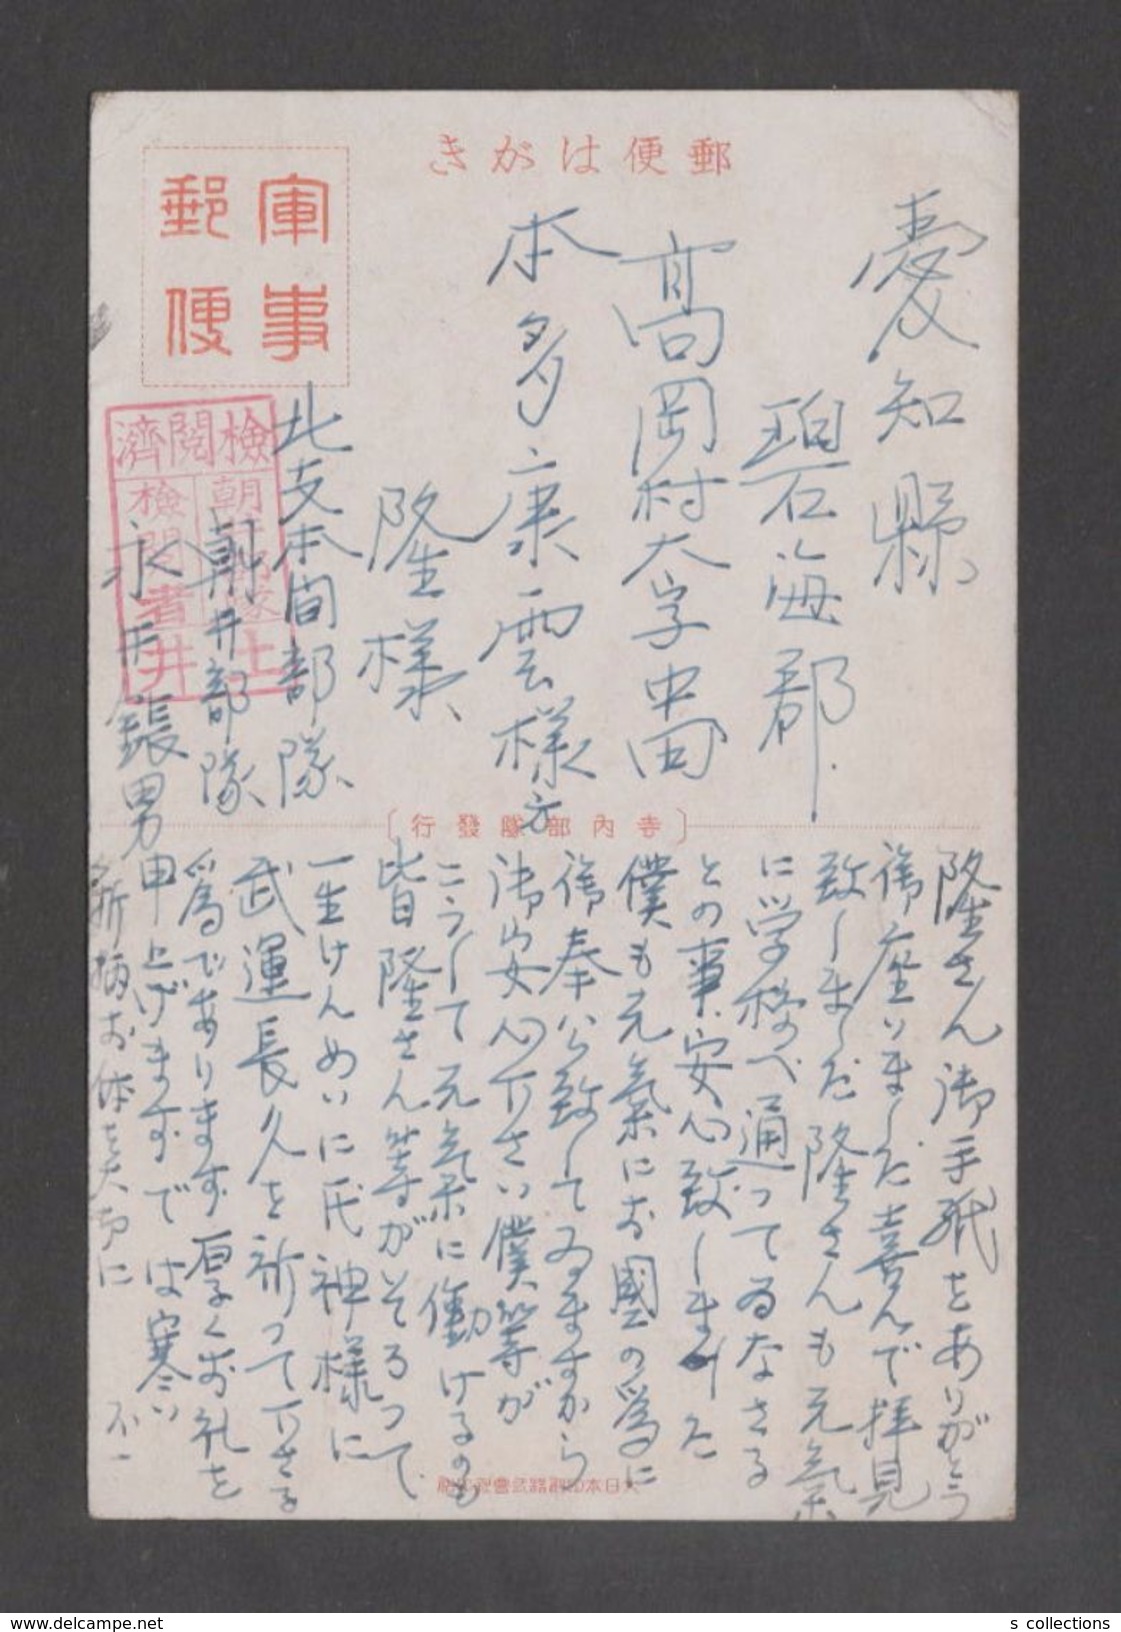 郵便はがき
軍事
郵便
愛知縣
碧海郡
高岡村大字中田
本多康雲様方
隆様
北支本間部隊
朝井部隊
永井錶男
検閲濟
検閲者
井上
寺内部隊發行
隆さん御手紙をありがとう
御座いました喜んで拝見
致しました隆さんも元氣
に学校へ通ってゐなさる
との事、安心致しました
僕も元氣にお國の為に
御奉公致してゐますから
御安心下さい僕等が
こうして元氣に働けるのも
皆隆さん等がそろって
一生けんめいに氏神様に
武運長久を祈って下さる
為であります厚くお礼を
申上げますでは寒い
折柄お体を大切に
不一
大日本印刷株式會社印刷
s collections